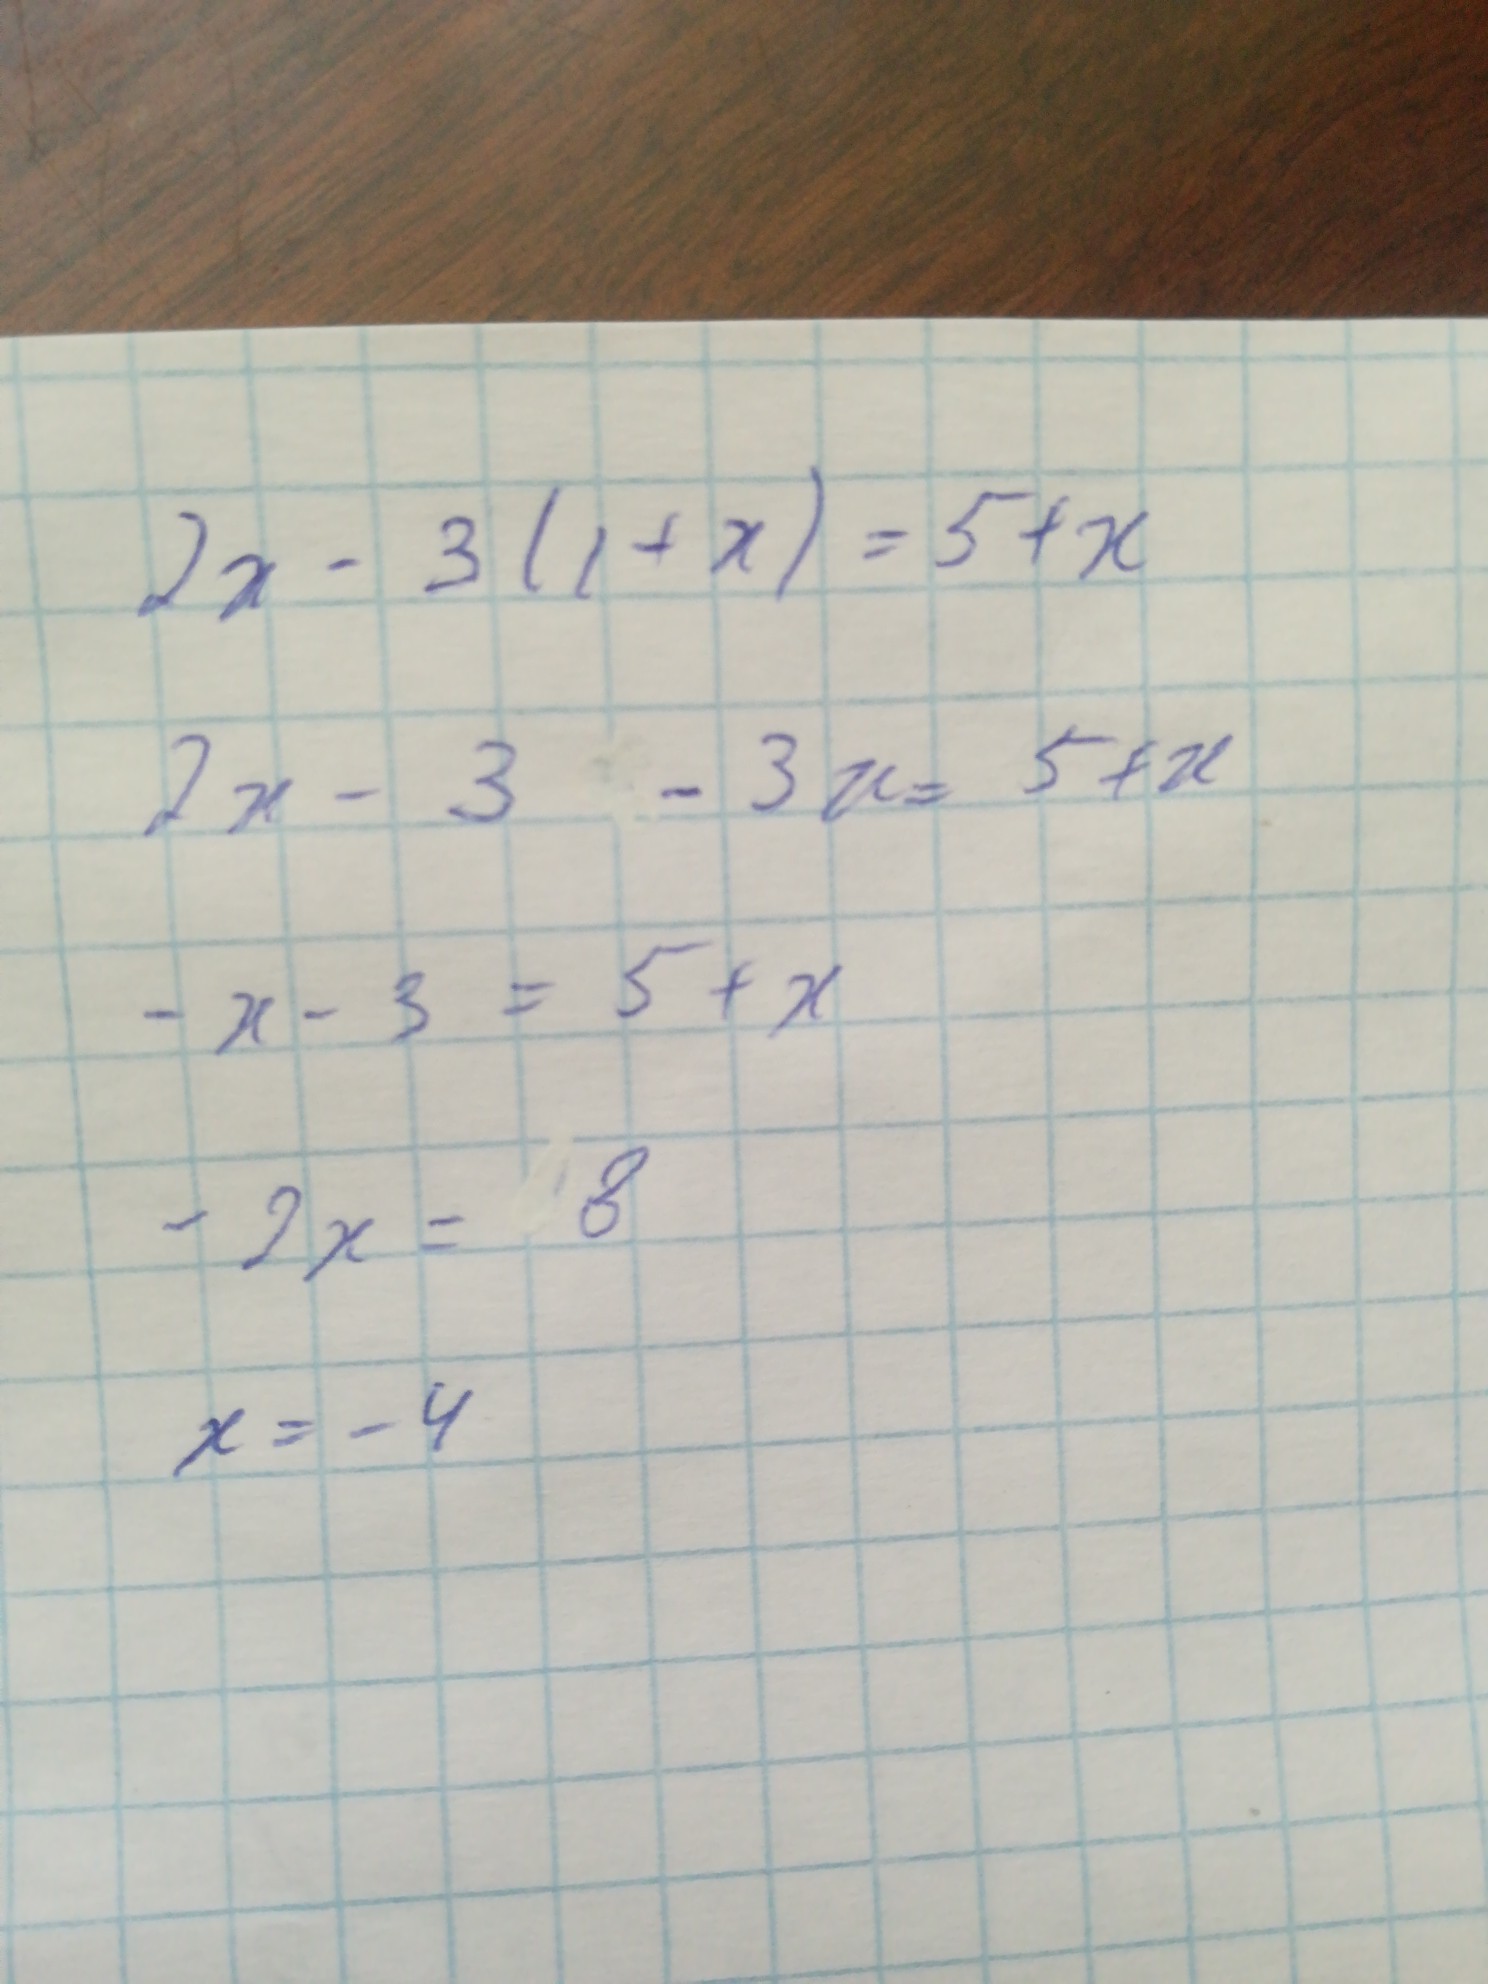 2x - 3(1+x) = 5+x
2x - 3 - 3x = 5+x
-x - 3 = 5+x
-2x = 8
x = -4